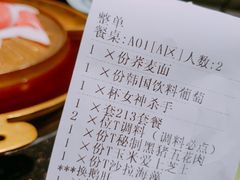 整单
餐桌:A01[A区]人数:2
1 ×份荞麦面
1 ×份韩国饮料葡萄
1 ×杯女神杀手
1 ×套213套餐
2 ×位T调料（调料必点）
1 ×份T秘制黑猪五花肉
1 ×份T玉米爱上芝士
1 ×份T沙拉海藻